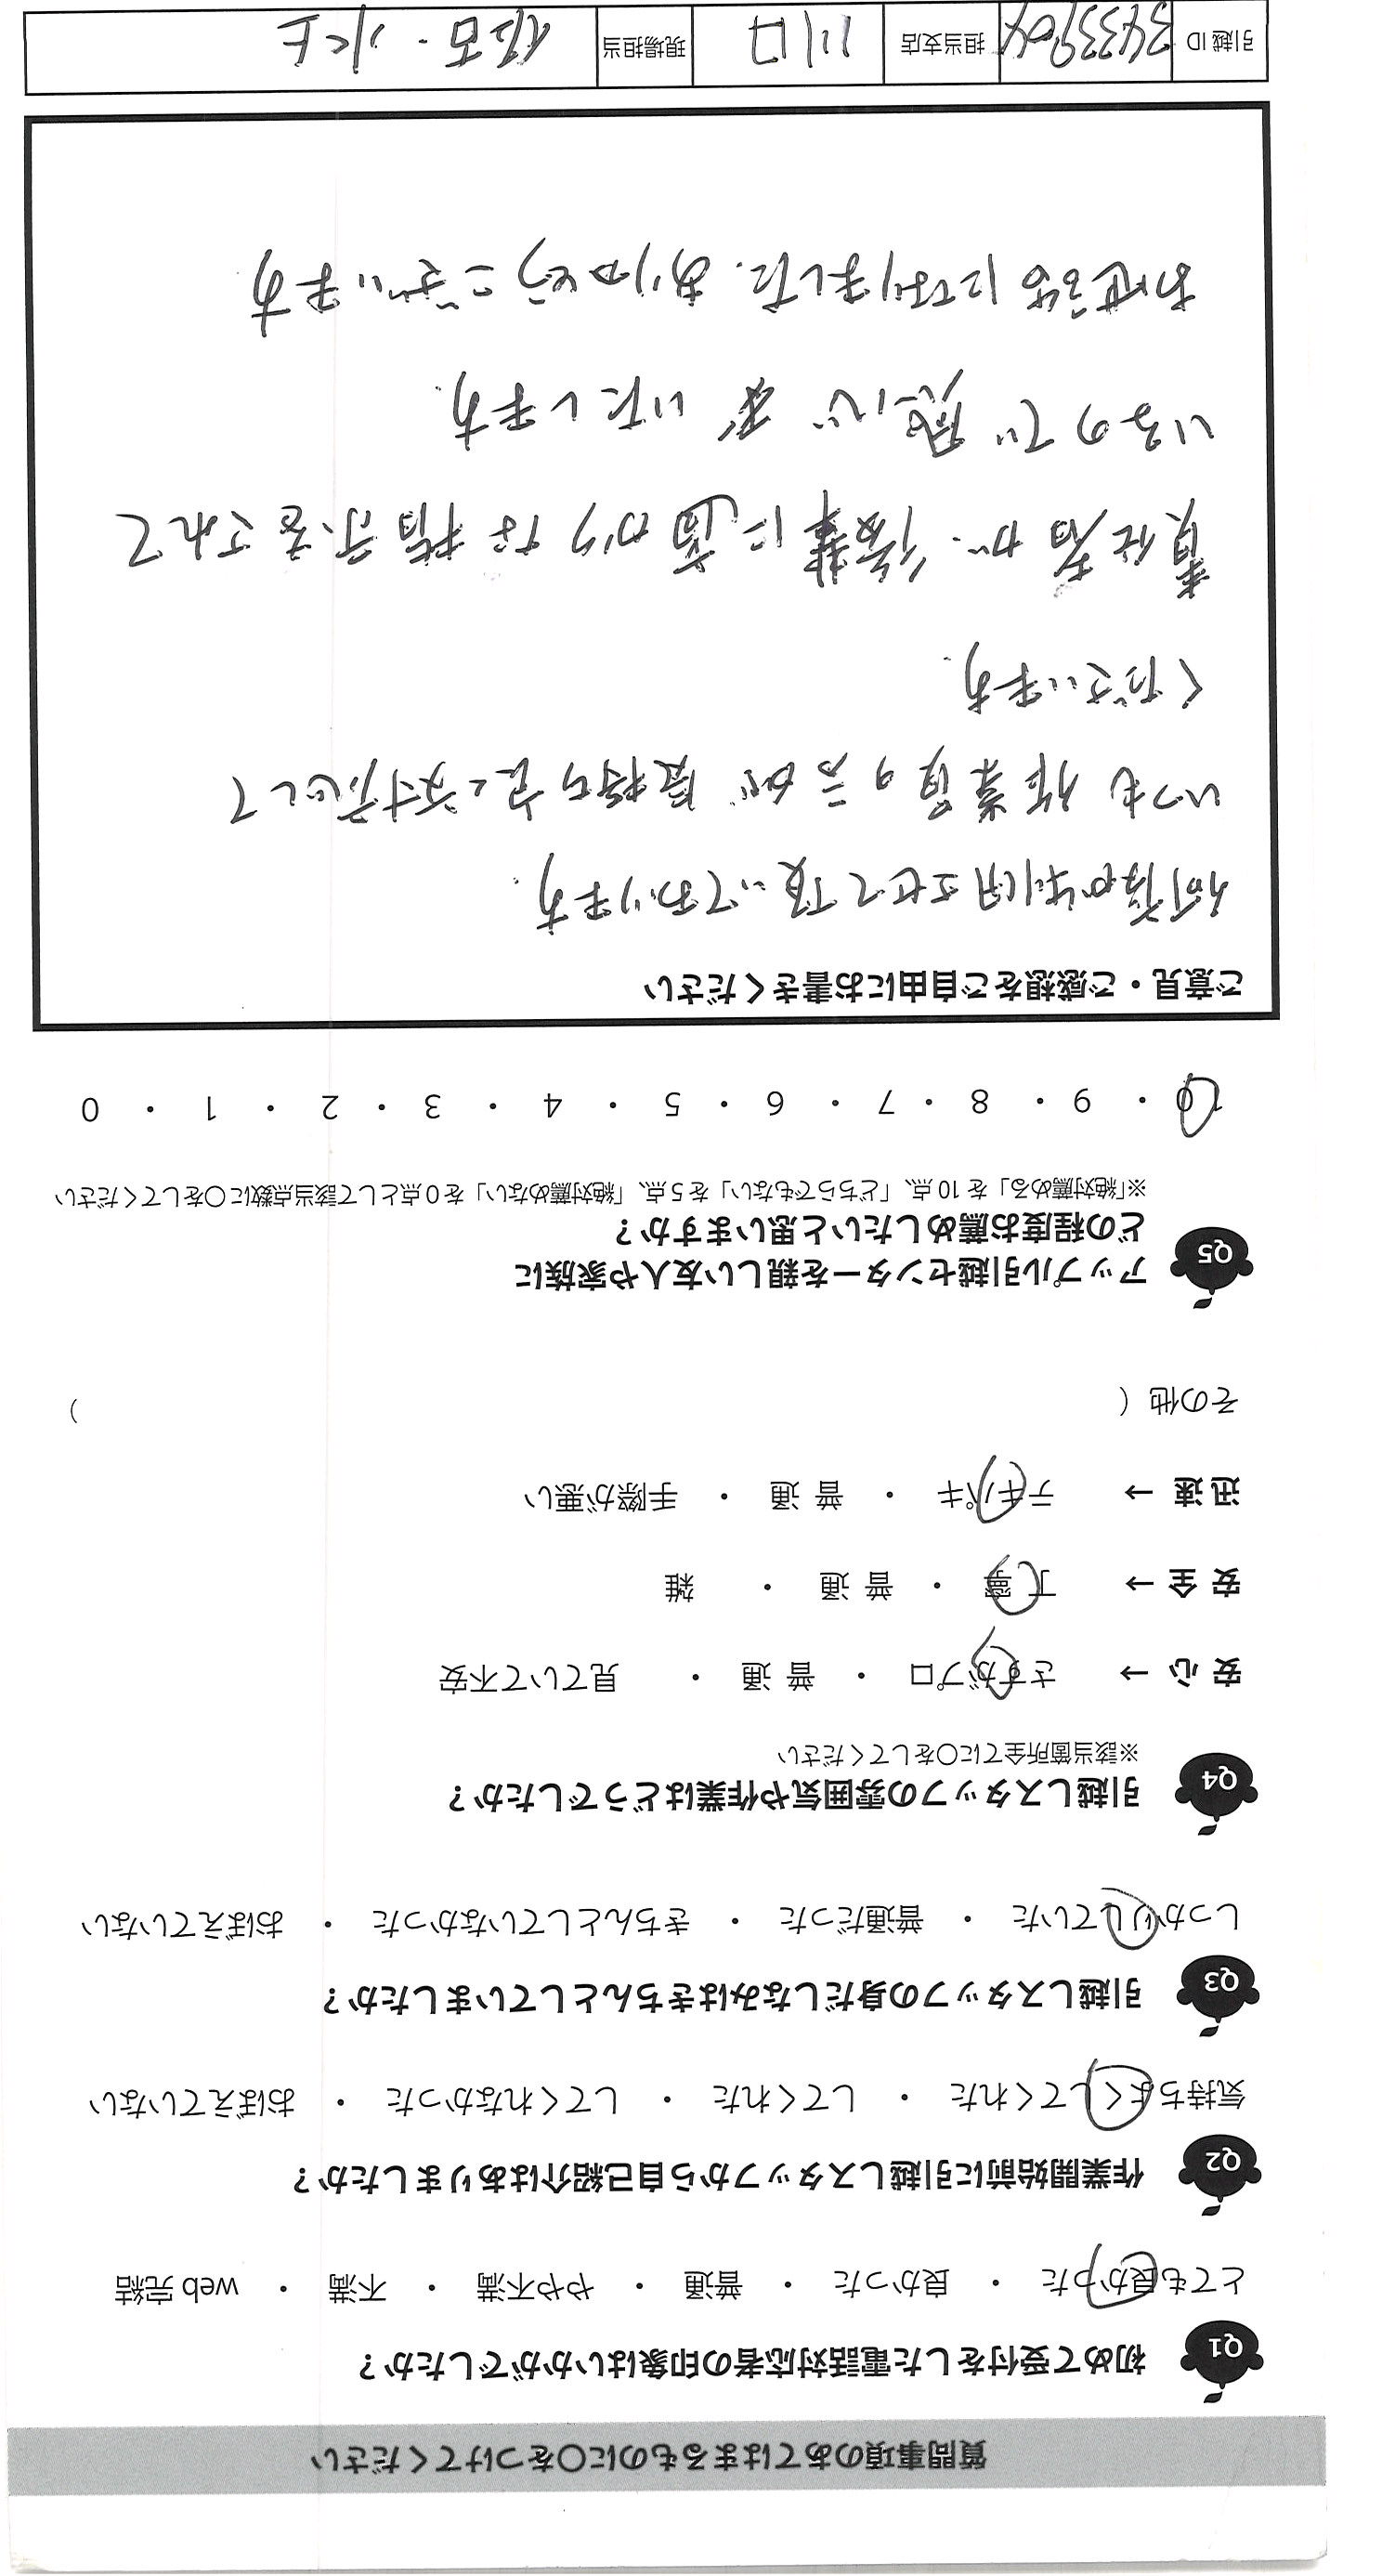 質問事項のあてはまるものに○をつけてください
Q1 初めて受付をした電話対応者の印象はいかがでしたか？
とても良かった ・ 良かった ・ 普通 ・ やや不満 ・ 不満 ・ web 完結
Q2 作業開始前に引越しスタッフから自己紹介はありましたか？
気持ちよくしてくれた ・ してくれた ・ してくれなかった ・ おぼえていない
Q3 引越しスタッフの身だしなみはきちんとしていましたか？
しっかりしていた ・ 普通だった ・ きちんとしていなかった ・ おぼえていない
Q4 引越しスタッフの雰囲気や作業はどうでしたか？
※該当箇所全てに○をしてください
安 心 → さすがプロ ・ 普 通 ・ 見ていて不安
安 全 → 丁 寧 ・ 普 通 ・ 雑
迅 速 → テキパキ ・ 普 通 ・ 手際が悪い
その他（ ）
Q5 アップル引越センターを親しい友人や家族に
どの程度お薦めしたいと思いますか？
※「絶対薦める」を 10 点、「どちらでもない」を 5 点、「絶対薦めない」を 0 点として該当点数に○をしてください
10 ・ 9 ・ 8 ・ 7 ・ 6 ・ 5 ・ 4 ・ 3 ・ 2 ・ 1 ・ 0
ご意見・ご感想をご自由にお書きください
何度か利用させて頂いております。
いつも作業員の方が気持ち良く対応して
くださいます。
責任者が、後輩に的確な指示をされて
いるので感心いたします。
お世話になりました。ありがとうございます
引越 ID 3433904 担当支店 川口 現場担当